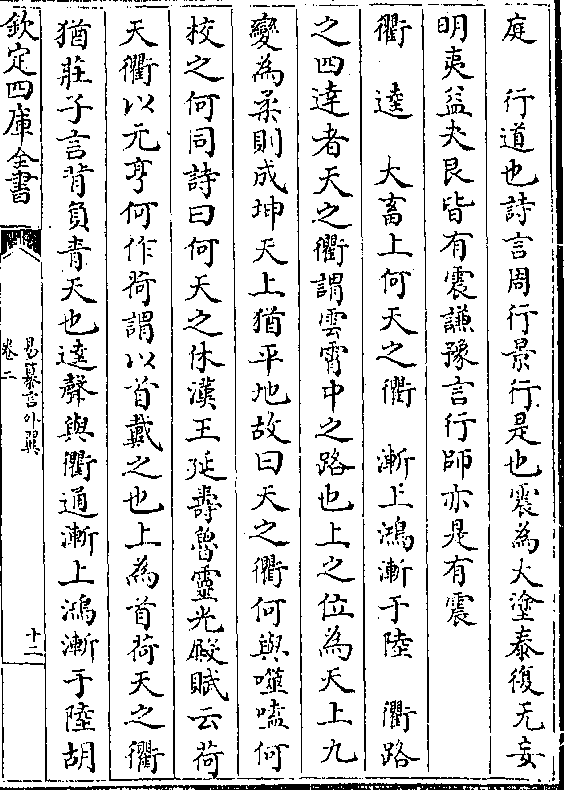 庭　行道也詩言周行景行是也震為大塗泰復无妄
明夷益夬艮皆有震謙豫言行師亦是有震
衢　逵　大畜上何天之衢　漸上鴻漸于陸　衢路
之四達者天之衢謂雲霄中之路也上之位為天上九
變為柔則成坤天上猶平地故曰天之衢何與噬嗑何
校之何同詩曰何天之休漢王延壽魯靈光殿賦云荷
天衢以元亨何作荷謂以首戴之也上為首荷天之衢
猶莊子言背負青天也逵聲與衢通漸上鴻漸于陸胡
欽定四庫全書
易纂言外翼
卷二
十二